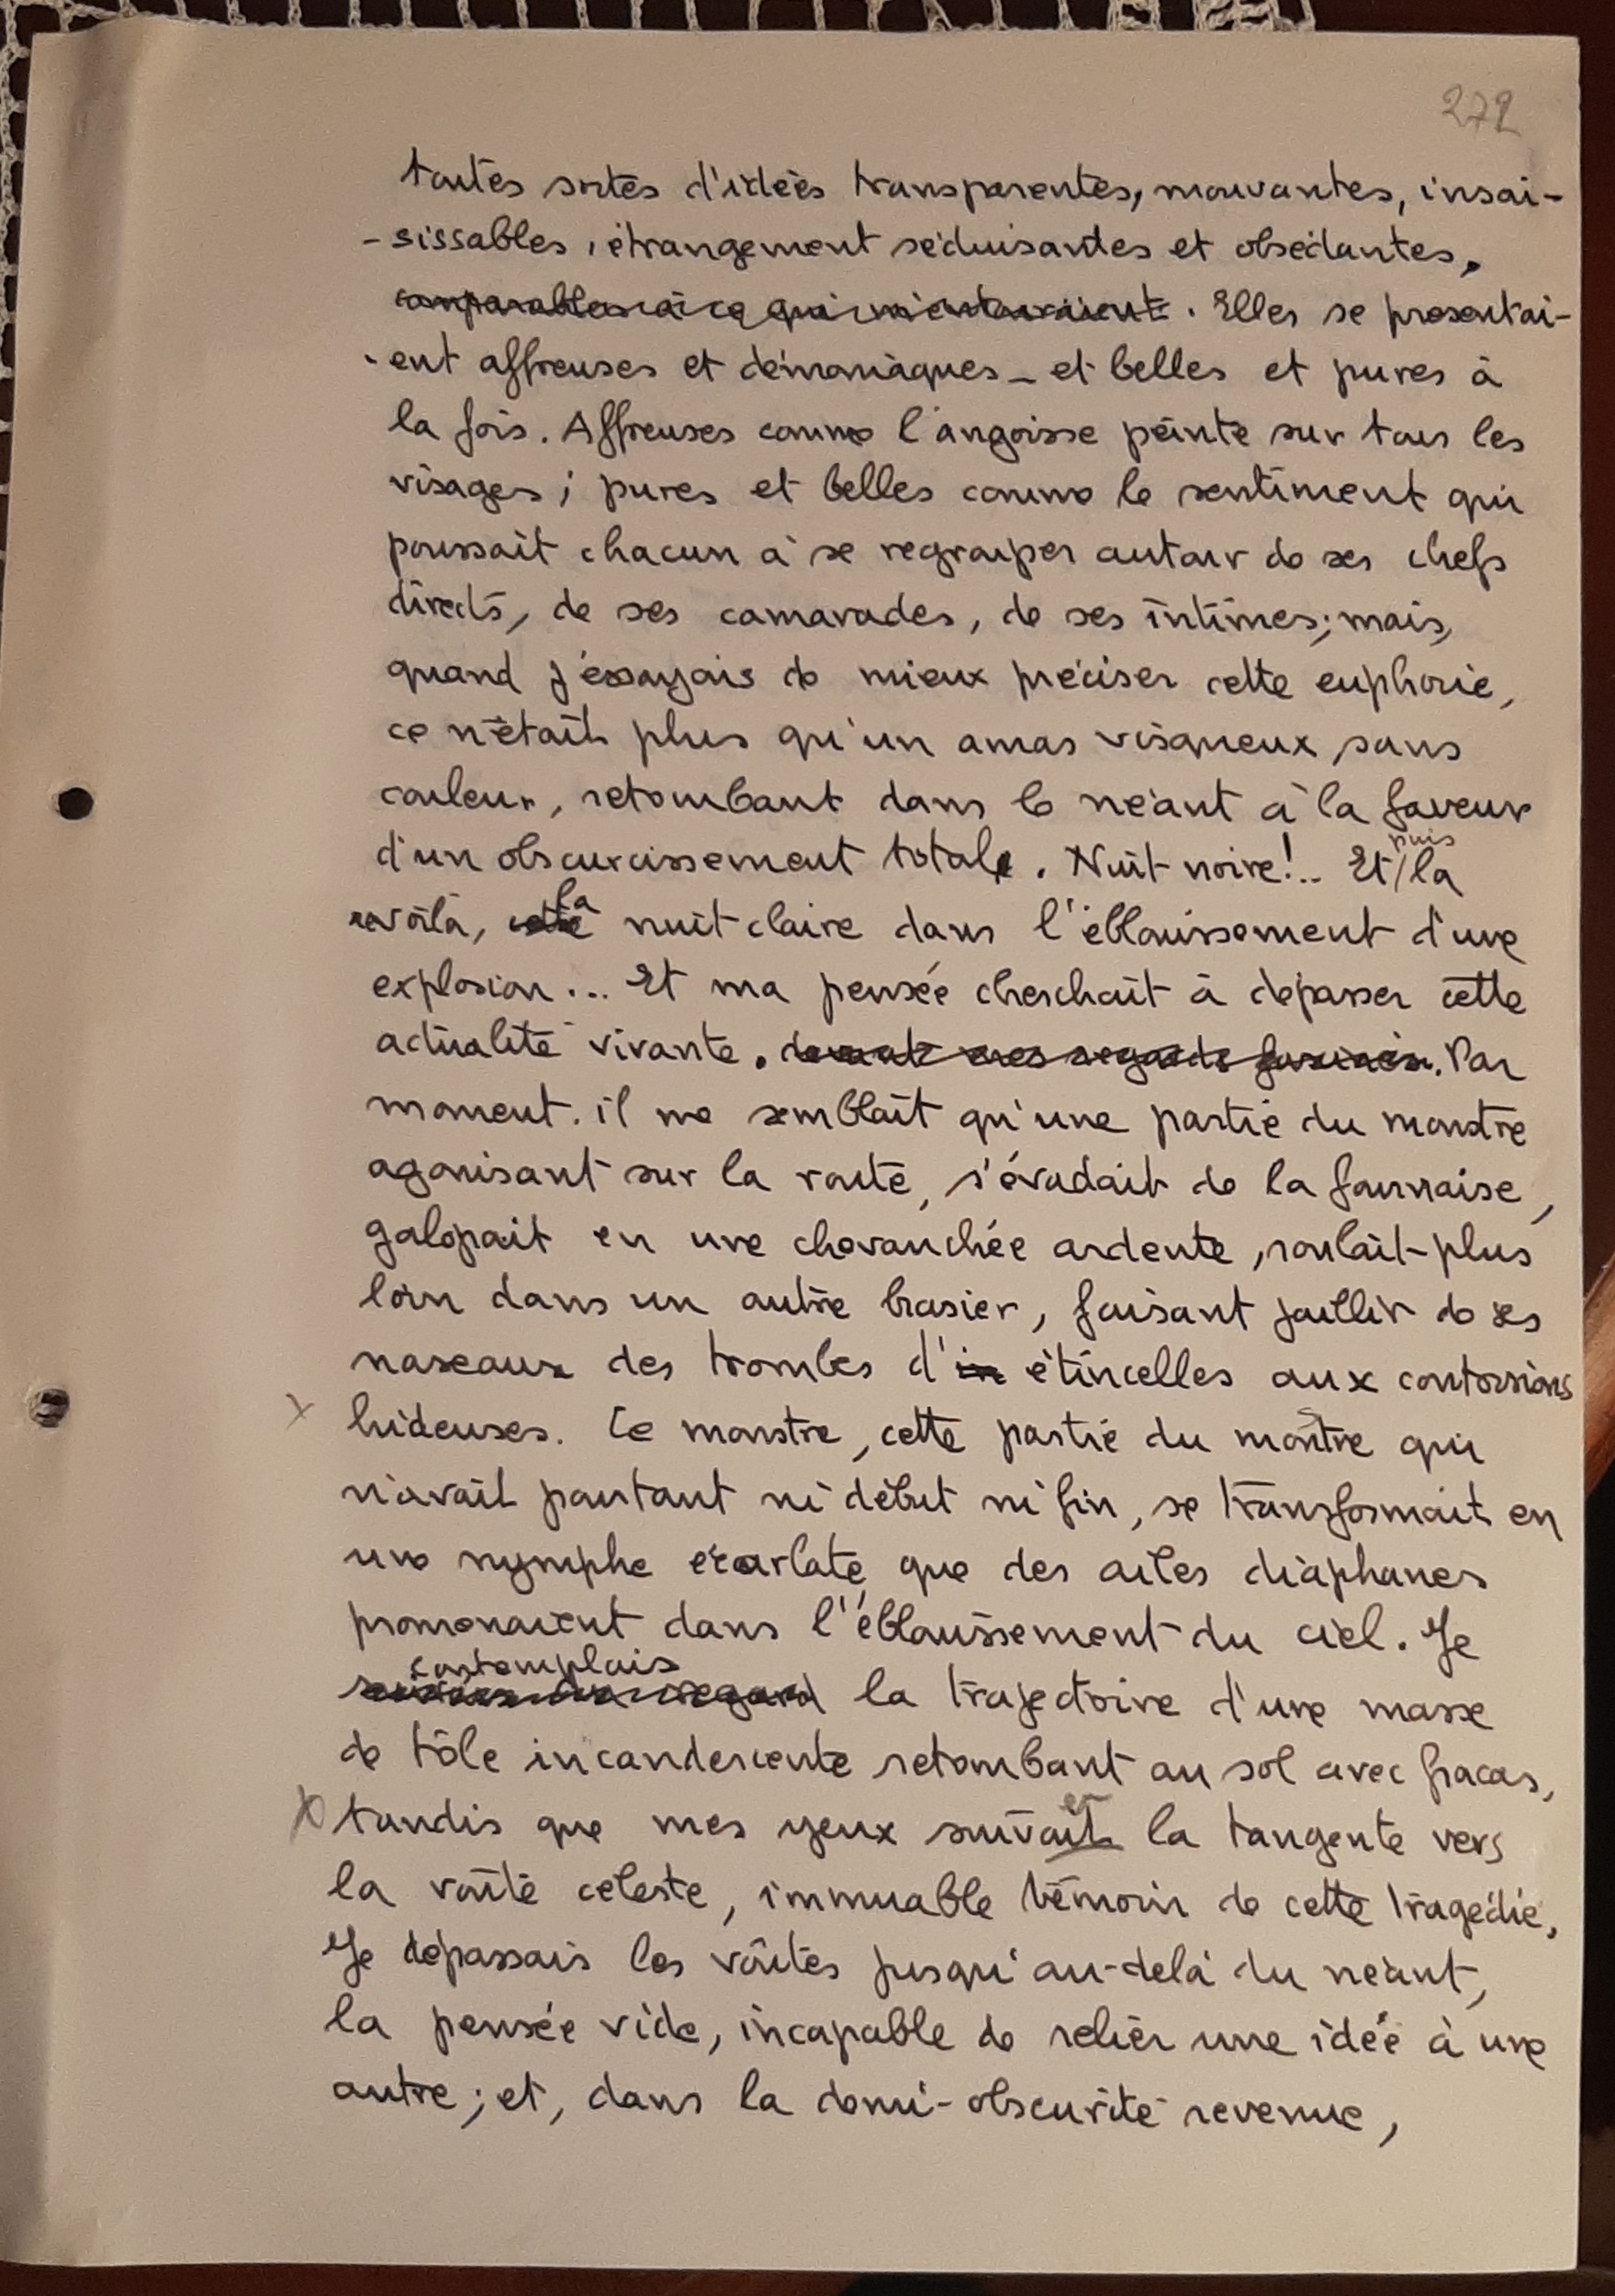 272
toutes sortes d'idées transparentes, mouvantes, insai-
-sissables, étrangement séduisantes et obsédantes,
comparables à ce qui m'entouraient. Elles se présentai-
-ent affreuses et démoniaques - et belles et pures à
la fois. Affreuses comme l'angoisse peinte sur tous les
visages ; pures et belles comme le sentiment qui
poussait chacun à se regrouper autour de ses chefs
directs, de ses camarades, de ses intimes; mais,
quand j'éssayais de mieux préciser cette euphorie,
ce n'était plus qu'un amas visqueux sans
couleur, retombant dans le néant à la faveur
puis
d'un obscurcissement total. Nuit noire!.. Et/la
la
revoilà, cette nuit claire dans l'éblouissement d'une
explosion... Et ma pensée cherchait à dépasser cette
actualité vivante. devant mes regards fascinés. Par
moment. il me semblait qu'une partie du monstre
agonisant sur la route, s'évadait de la fournaise,
galopait en une chevauchée ardente, roulait plus
loin dans un autre brasier, faisant jaillir de ses
naseaux des trombes d'in étincelles aux contorsions
x hideuses. Ce monstre, cette partie du monstre qui
n'avait pourtant ni début ni fin, se transformait en
une nymphe écarlate que des ailes diaphanes
promenaient dans l'éblouissement du ciel. Je
contemplais
suivais du regard la trajectoire d'une masse
de tôle incandescente retombant au sol avec fracas,
en
x tandis que mes yeux suivait la tangente vers
la voûte céleste, immuable témoin de cette tragédie,
Je dépassais les voûtes jusqu'au-delà du néant,
la pensée vide, incapable de relier une idée à une
autre ; et, dans la demi-obscurité revenue,